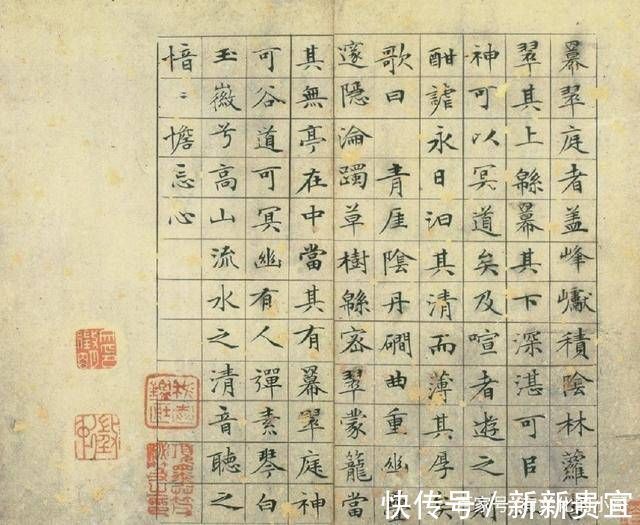 羃翠庭者盖峰巘積陰林蘿
翠其上緜羃其下深湛可㠯
神可以冥道矣及喧者遊之
酣謔永日汩其清而薄其厚
歌曰 青厓陰丹磵曲重幽
邃隱淪躅草樹緜密翠蒙籠當
其無亭在中當其有羃翠庭神
可谷道可冥幽有人彈素琴白
玉徽兮高山流水之清音聽之
愔〻憺忘心
快传号/新新贵宜